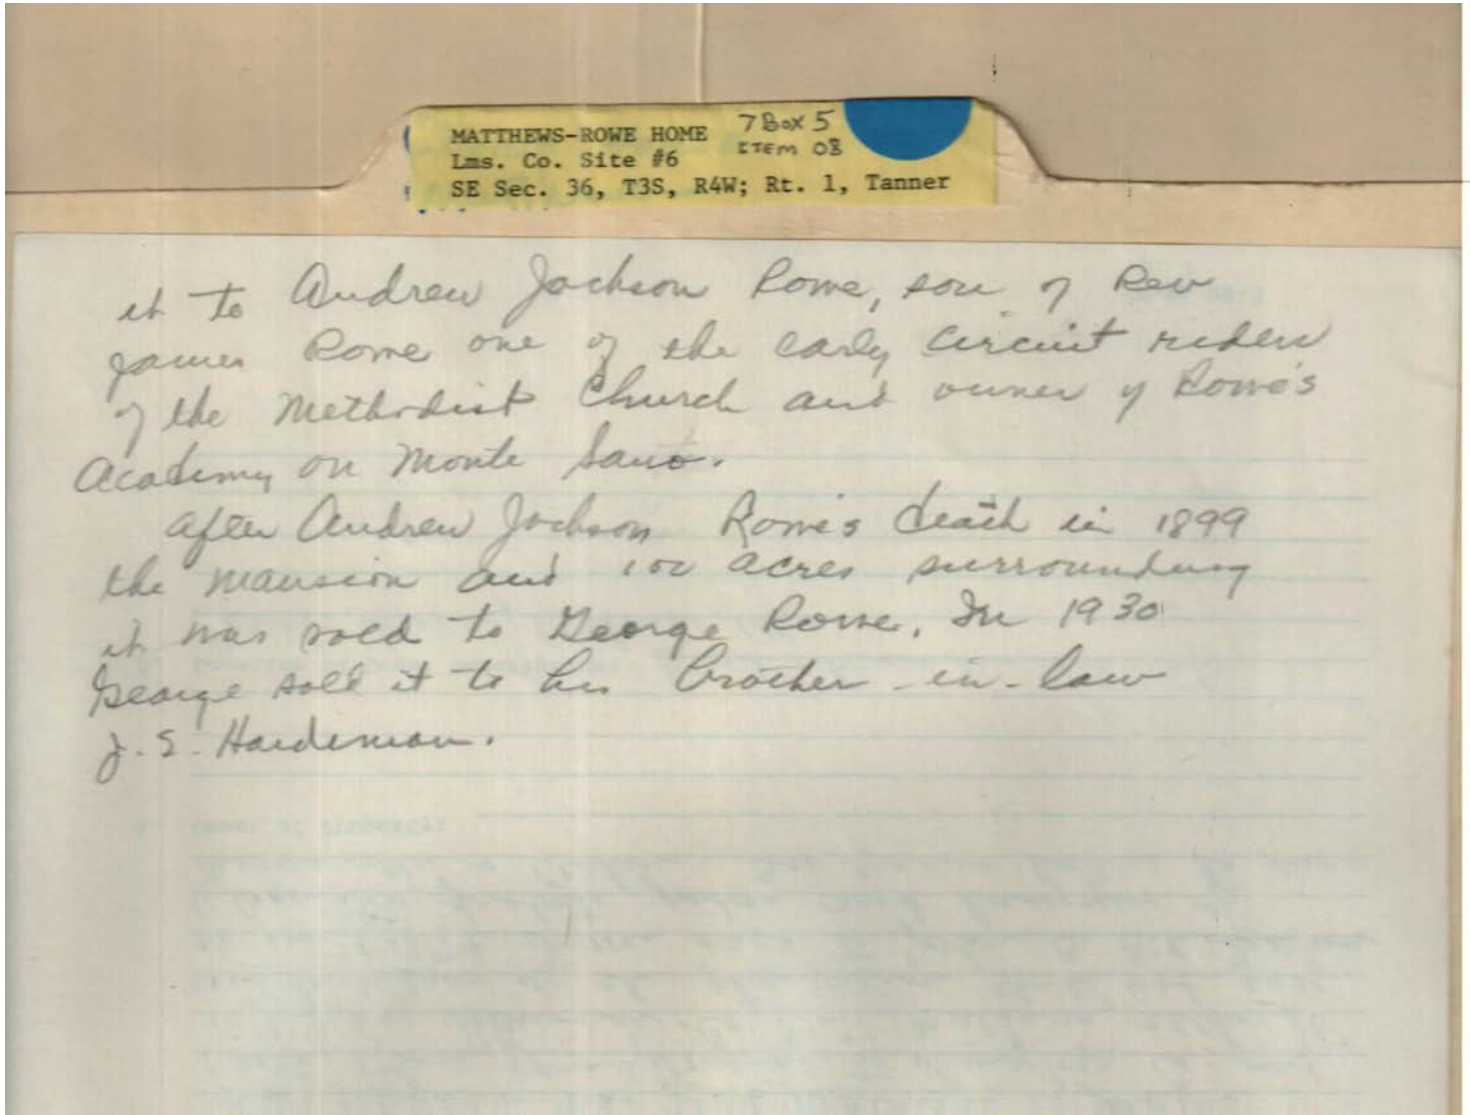 MATTHEWS-ROWE HOME 7 Box 5
Lms. Co. Site #6 ITEM 08
SE Sec. 36, T3S, R4W; Rt. 1, Tanner
it to Andrew Jackson Rowe, son of Rev
James Rowe one of the early circuit riders
of the Methodist Church and owner of Rowe's
Academy on Monte Sano.
After Andrew Jackson Rowe's death in 1899
the mansion and 100 acres surrounding
it was sold to George Rowe. In 1930
George sold it to his brother-in-law
J. S. Hardeman.